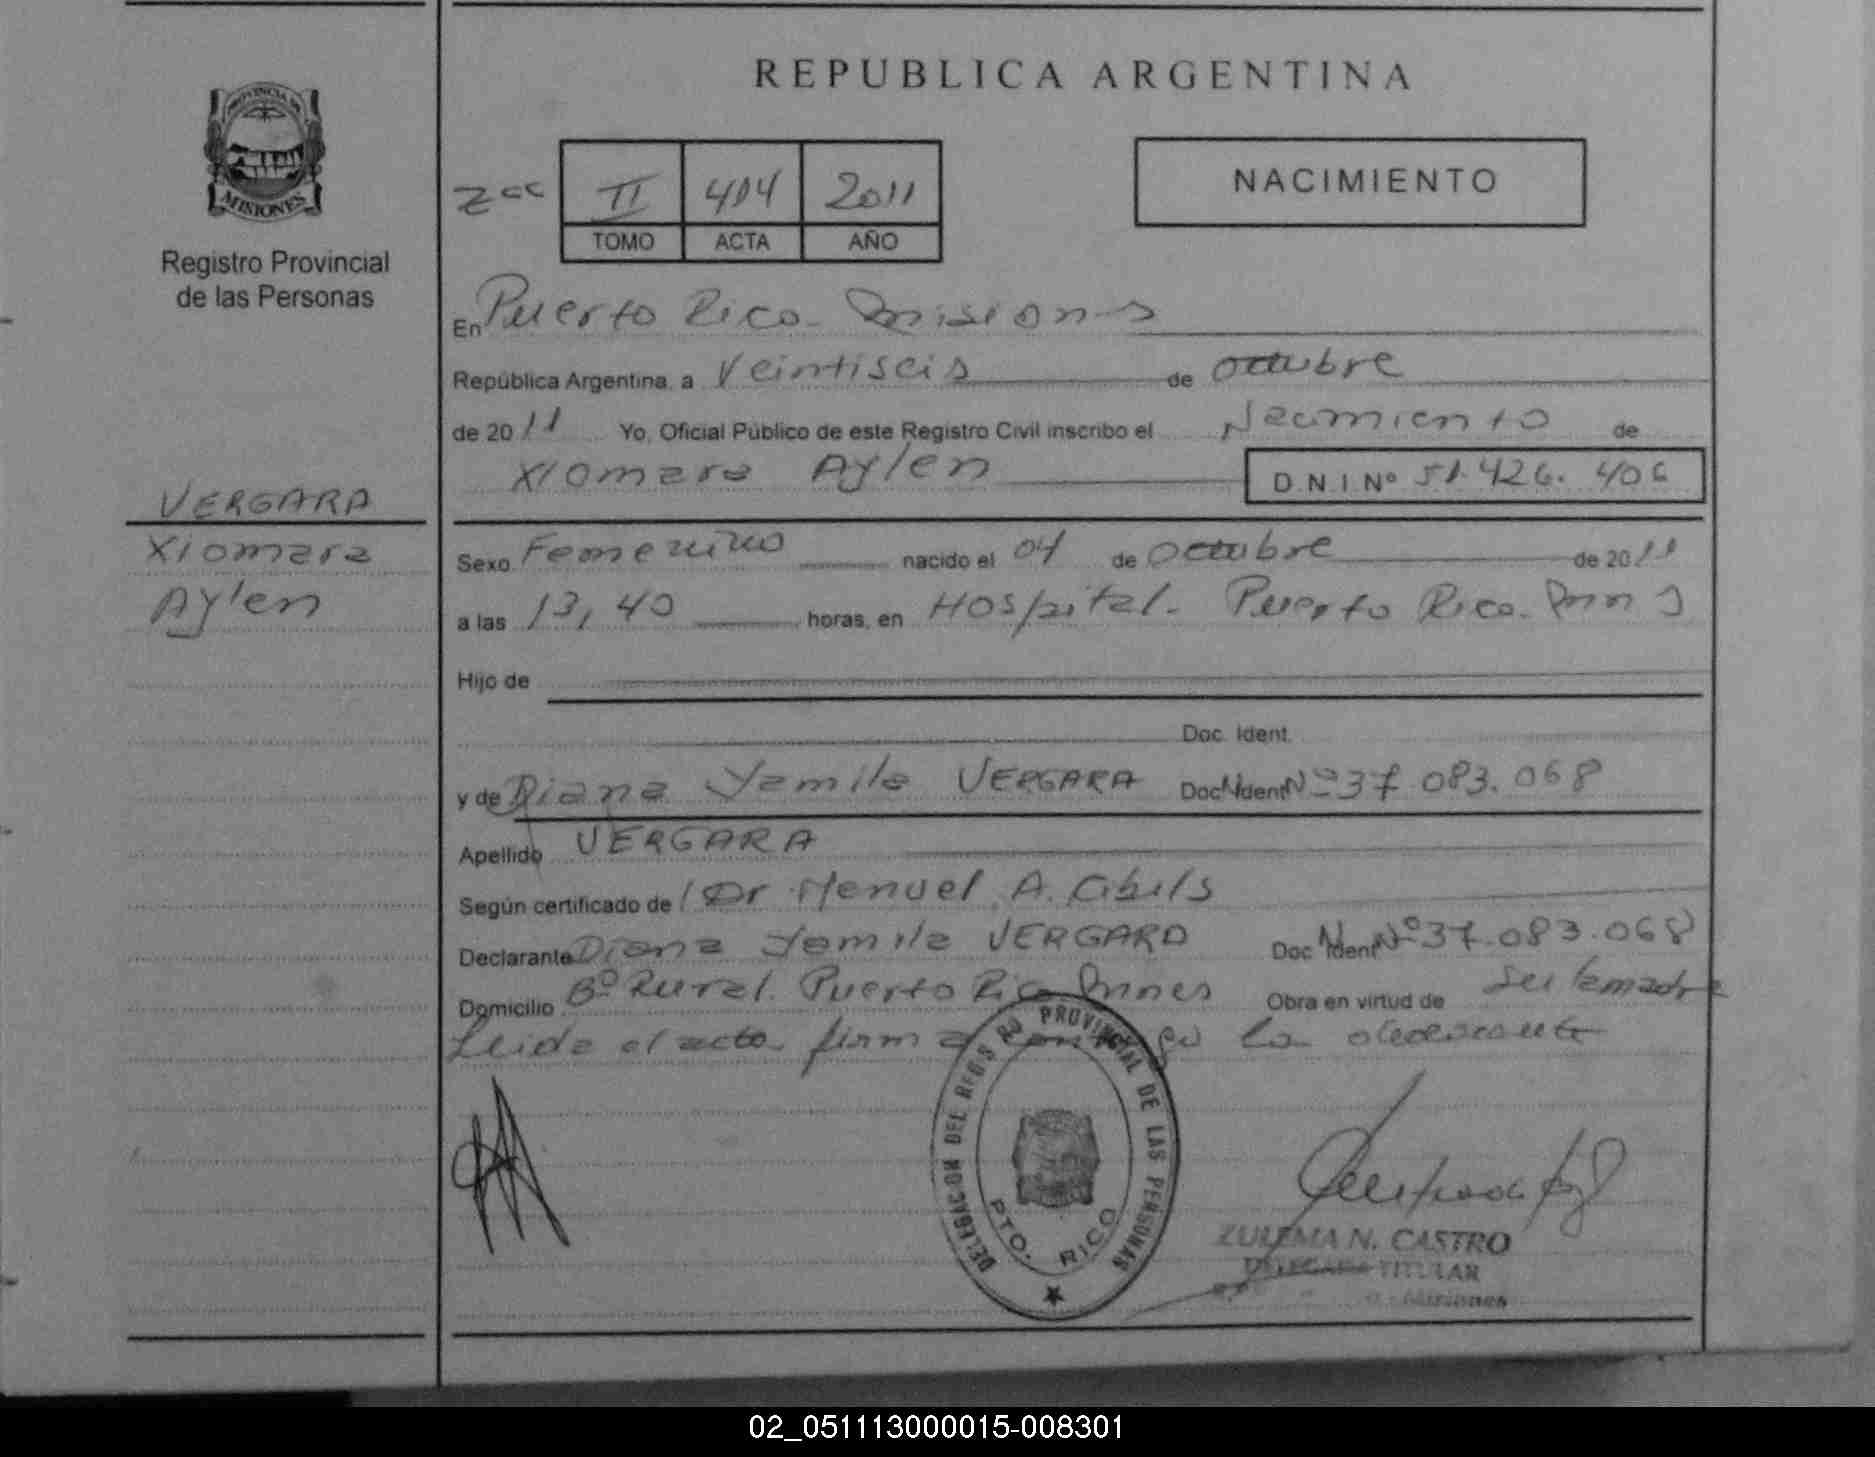 REPUBLICA ARGENTINA
PROVINCIA DE
MISIONES
Registro Provincial
de las Personas
II 414 2011
TOMO ACTA AÑO
NACIMIENTO
En Puerto Rico - Misiones
República Argentina, a Veintiseis de octubre
de 2011 Yo, Oficial Público de este Registro Civil inscribo el Nacimiento de
Xiomara Aylen D.N.I.Nº 51.426.406
VERGARA
Xiomara
Aylen
Sexo Femenino nacido el 04 de octubre de 2011
a las 13,40 horas, en Hospital - Puerto Rico - Mnes
Hijo de
Doc. Ident.
y de Diana Yamila VERGARA Doc. Ident. Nº 37.083.068
Apellido VERGARA
Según certificado de Dr Manuel A.
Declarante Diana Yamila VERGARA Doc. Ident. Nº 37.083.068
Domicilio Bº Rural. Puerto Rico Mnes Obra en virtud de ser la madre
Leida el acta firma conmigo la
DELEGACION DEL REGISTRO PROVINCIAL DE LAS PERSONAS
PTO. RICO
ZULEMA N. CASTRO
DELEGADA TITULAR
Misiones
02_051113000015-008301